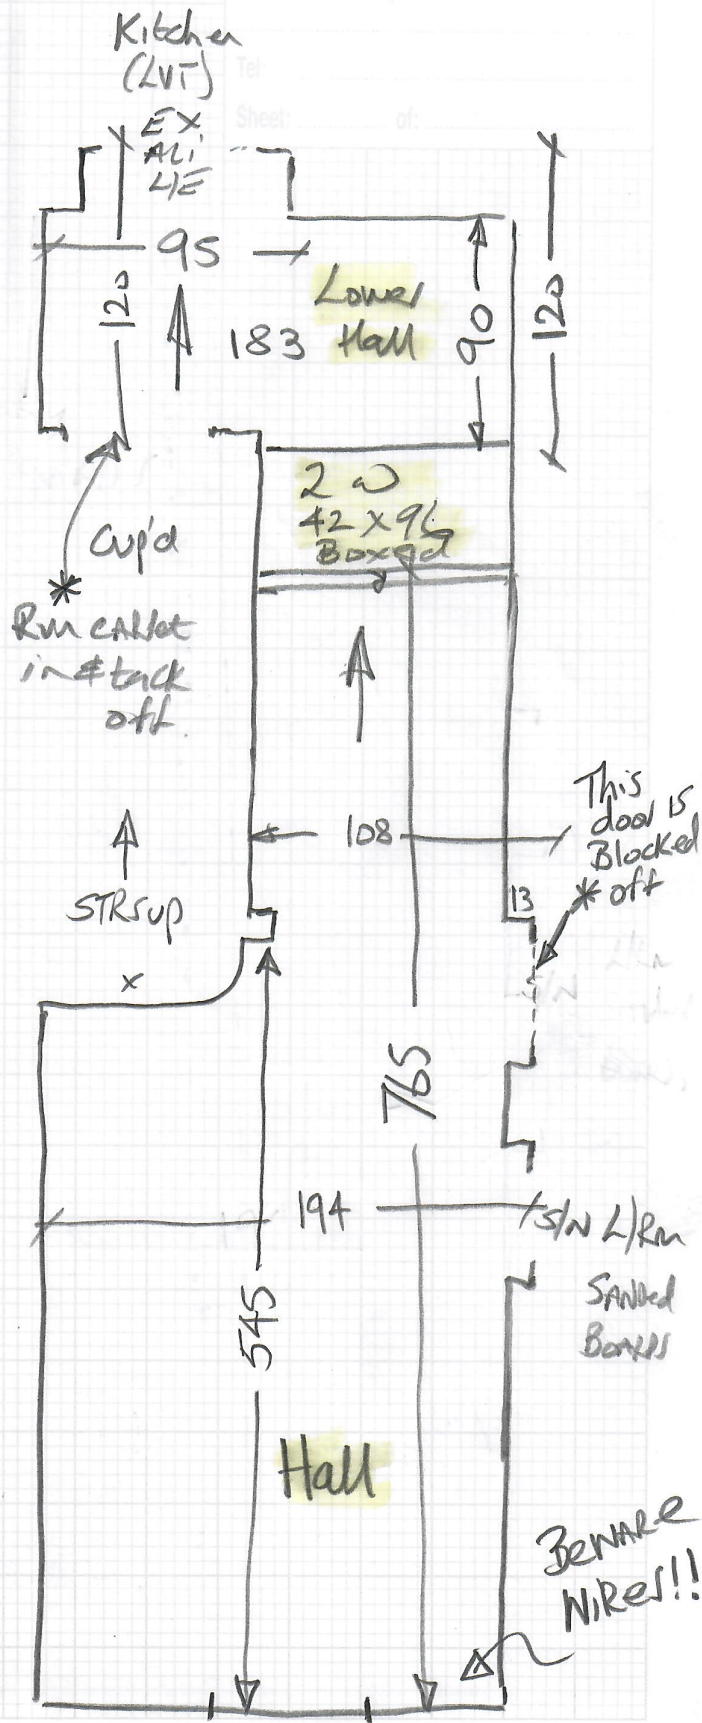 Kitchen
(LVT)
Tel
Sheet: of:
EX
ALi
L/E
95
120
183
Lower
Hall
90
120
2 W
42 x 96
Boxed
Cup'd
*
Rm CARPet
in & tack
off.
This
door is
Blocked
* off
108
13
STRS up
x
765
194
S/N L/Rm
SANDed
BOARDS
545
Hall
BeWARe
WiRes!!